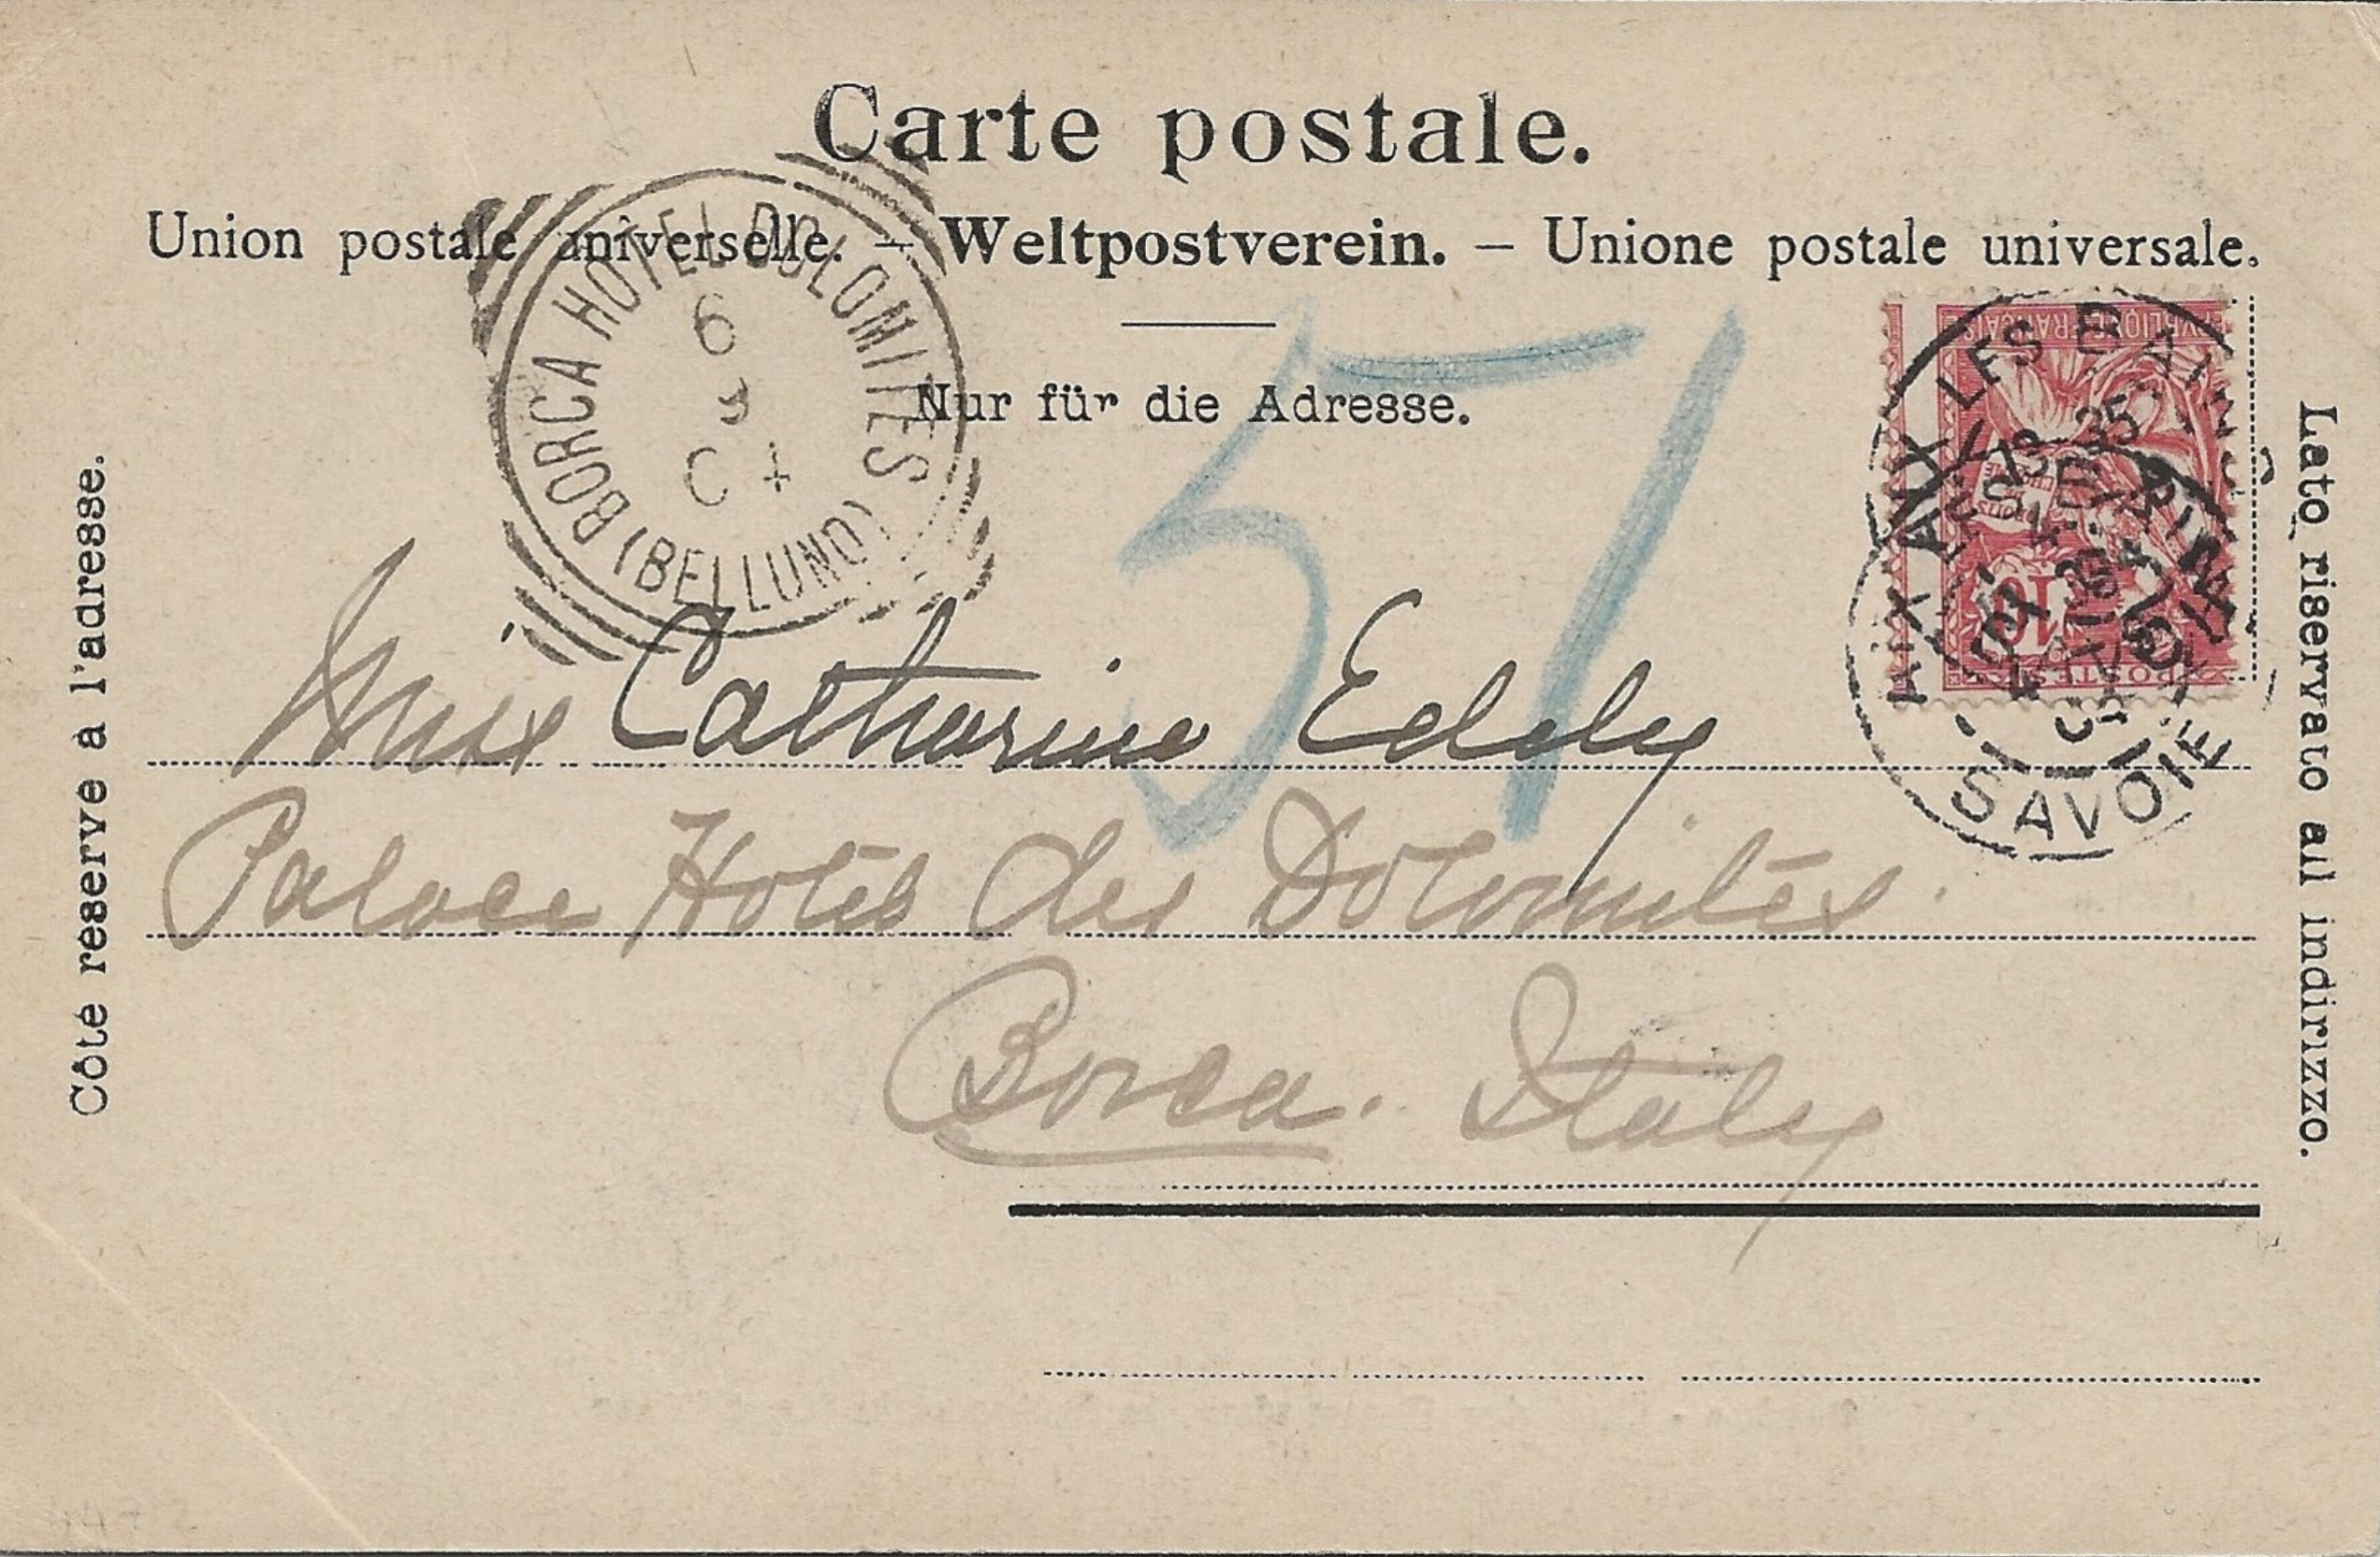 Carte postale.
Union postale universelle. – Weltpostverein. – Unione postale universale.
Nur für die Adresse.
Côté reserve à l'adresse.
Lato riservato all indirizzo.
BORCA HOTEL DOLOMITES
(BELLUNO)
6
AIX LES BAINS
SAVOIE
10
POSTES
57
Miss Catharine Eddy
Palace Hotel des Dolomites.
Borca. Italy